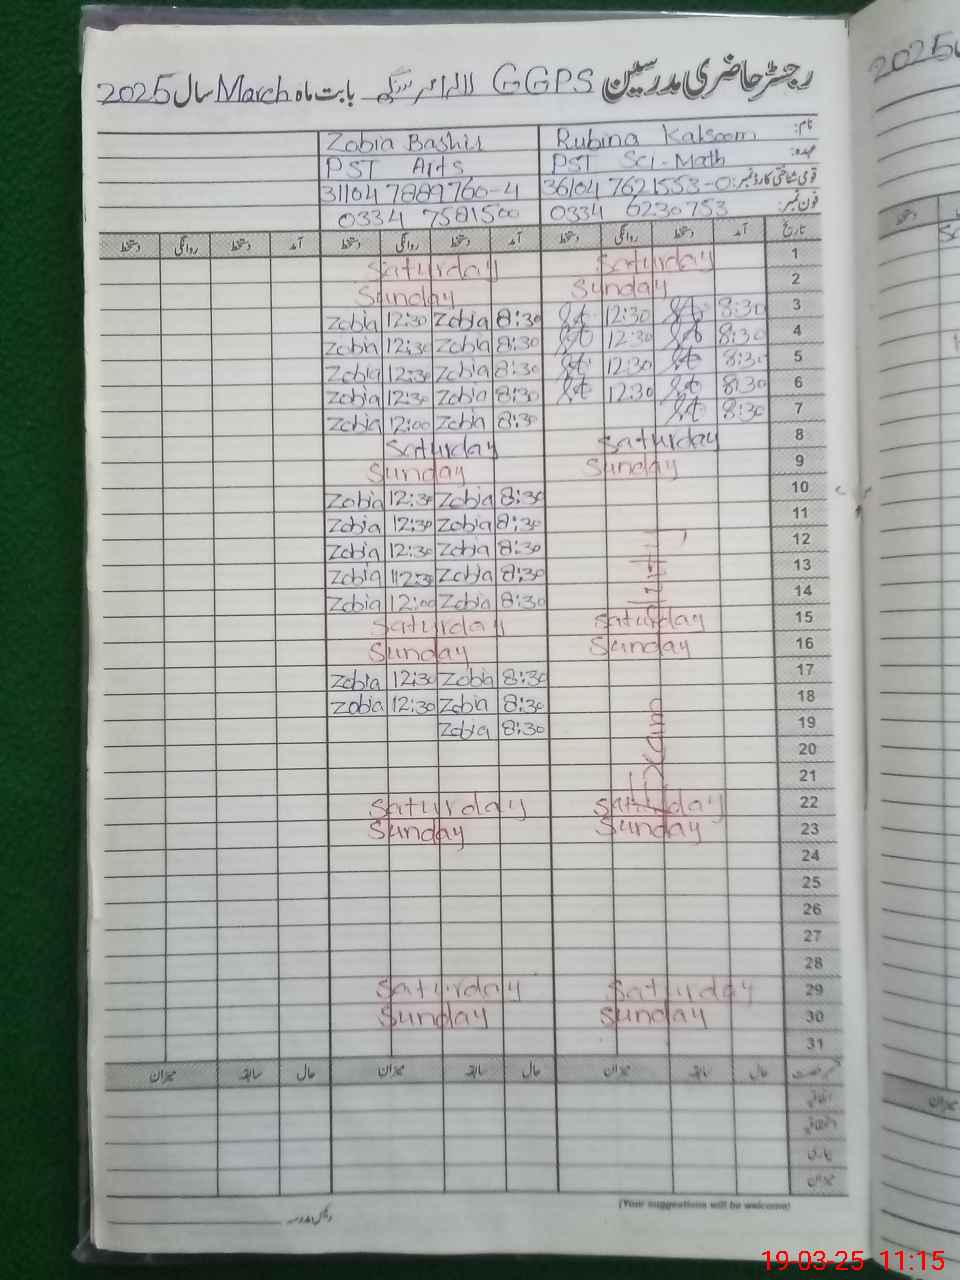 رجسٹر حاضری مدرسین GGPS بابت ماہ March سال 2025
Zobia Bashir Rubina Kalsoom نام:
PST Arts PST Sci-Math عہدہ:
31104 7889760-4 36104 7621553-0 قومی شناختی کارڈ نمبر:
0334 7581500 0334 6230753 فون نمبر:
تاریخ آمد دستخط روانگی دستخط آمد دستخط روانگی دستخط آمد دستخط روانگی دستخط
Saturday Saturday 1
Sunday Sunday 2
Zobia 12:30 Zobia 8:30 12:30 8:30 3
Zobia 12:30 Zobia 8:30 12:30 8:30 4
Zobia 12:30 Zobia 8:30 12:30 8:30 5
Zobia 12:30 Zobia 8:30 12:30 8:30 6
Zobia 12:00 Zobia 8:30 8:30 7
Saturday Saturday 8
Sunday Sunday 9
Zobia 12:30 Zobia 8:30 10
Zobia 12:30 Zobia 8:30 11
Zobia 12:30 Zobia 8:30 12
Zobia 12:30 Zobia 8:30 13
Zobia 12:00 Zobia 8:30 14
Saturday Saturday 15
Sunday Sunday 16
Zobia 12:30 Zobia 8:30 17
Zobia 12:30 Zobia 8:30 18
Zobia 8:30 19
20
21
Exam
Saturday Saturday 22
Sunday Sunday 23
24
25
26
27
28
Saturday Saturday 29
Sunday Sunday 30
31
حال سابقہ میزان حال سابقہ میزان حال سابقہ میزان
اتفاقیہ
استحقاقیہ
بیماری
میزان
(Your suggestions will be welcome)
2025
19-03-25 11:15